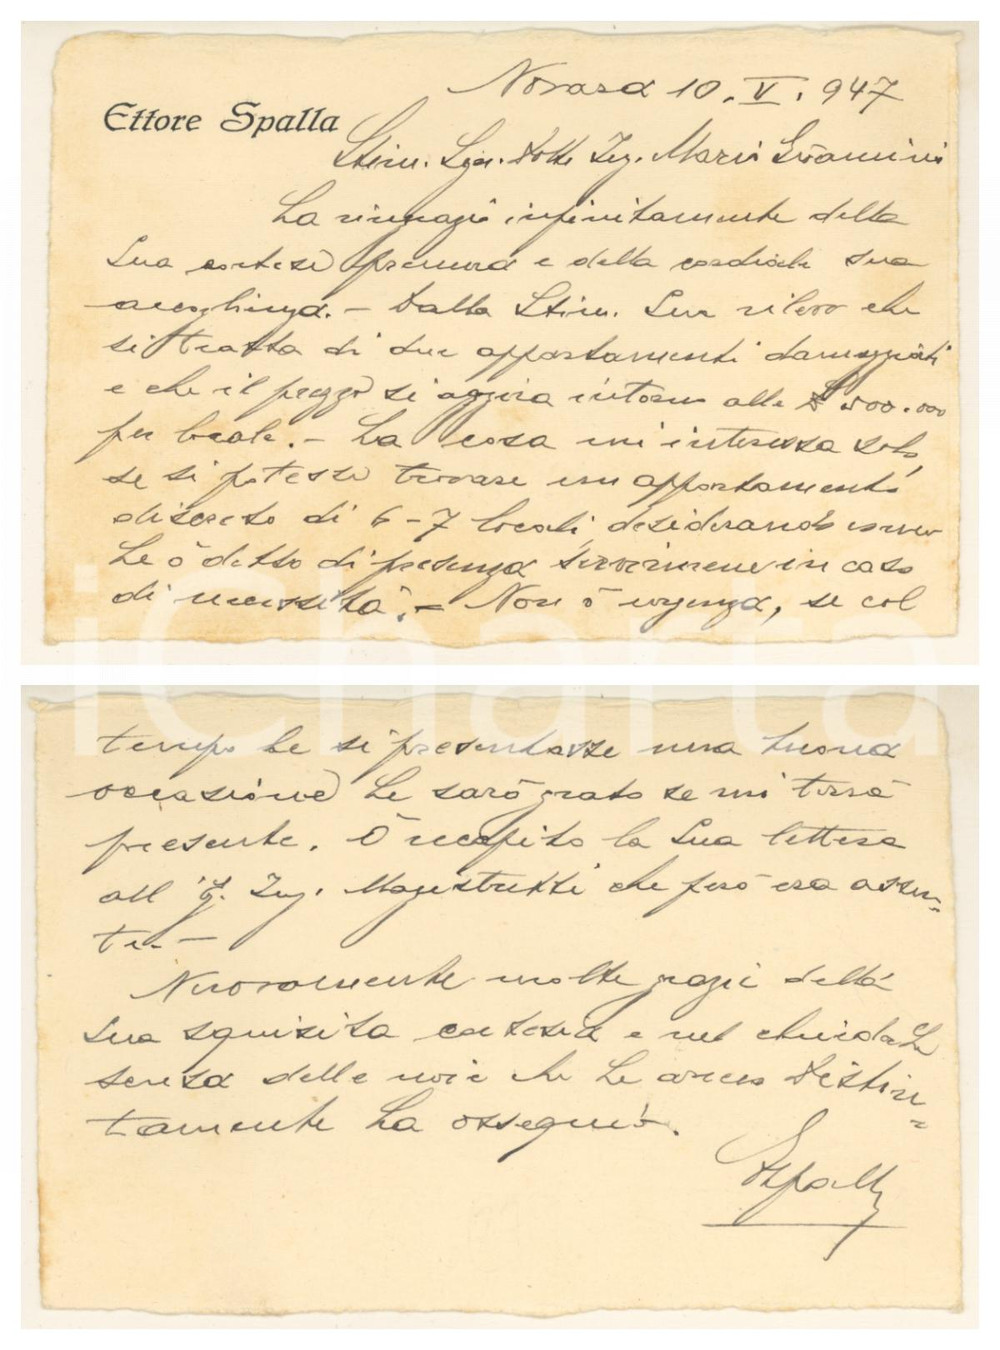 Novara 10. V. 947
Ettore Spalla
Stim. Sgr. Dott. Ing. Mario
La ringrazio infinitamente della
Sua cortese premura e della cordiale sua
accoglienza. - Dalla Stim. Sua rilevo che
si tratta di due appartamenti danneggiati
e che il prezzo si aggira intorno alle £ 500.000
per locale. - La cosa mi interessa solo
se si potesse trovare un appartamento
discreto di 6-7 locali, desiderando
Le ò detto di presenza servirmene in caso
di necessità. - Non ò urgenza, se col
tempo Le si presentasse una buona
occasione Le sarò grato se mi terrà
presente. Ò recapito la Sua lettera
all' Ing. Magistretti che però era assen=
te. -
Nuovamente molte grazie della
Sua squisita cortesia e nel chiederLe
scusa delle noie che Le areco distin=
tamente La ossequio.
ESpalla
iCharta